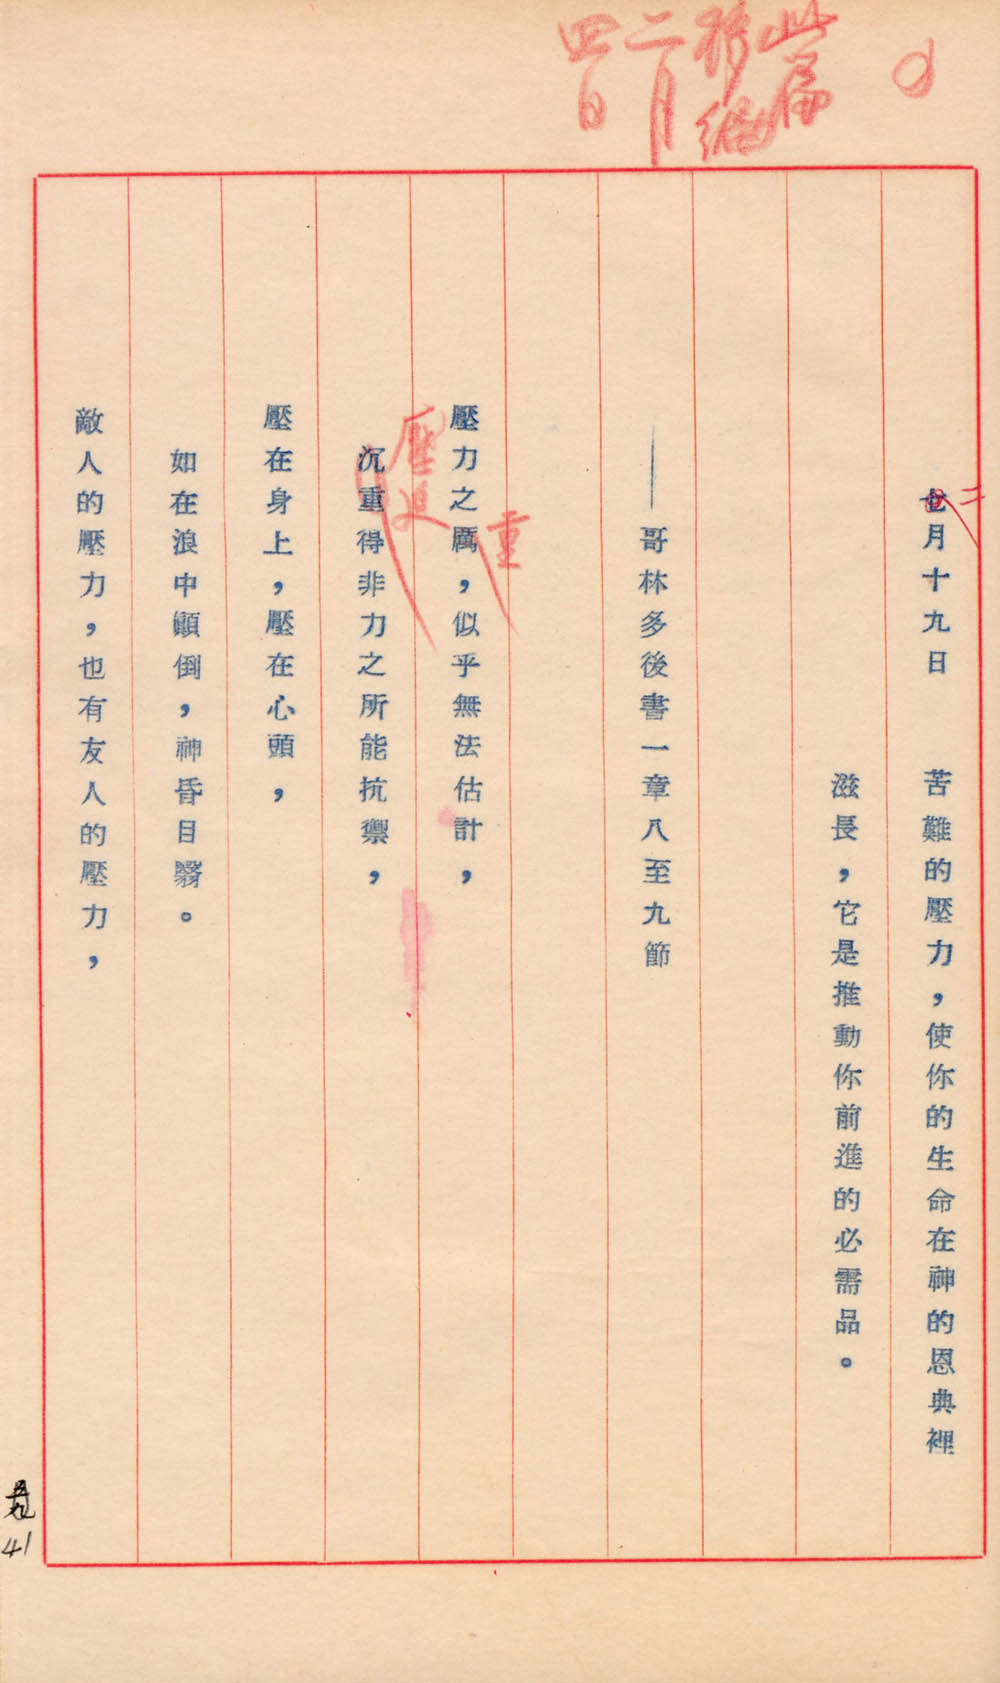 此篇
移編
二月
四日
二
七月十九日　苦難的壓力，使你的生命在神的恩典裡
滋長，它是推動你前進的必需品。
——哥林多後書一章八至九節
重
壓力之厲，似乎無法估計，
壓
沉重得非力之所能抗禦，
壓在身上，壓在心頭，
如在浪中顛倒，神昏目翳。
敵人的壓力，也有友人的壓力，
41